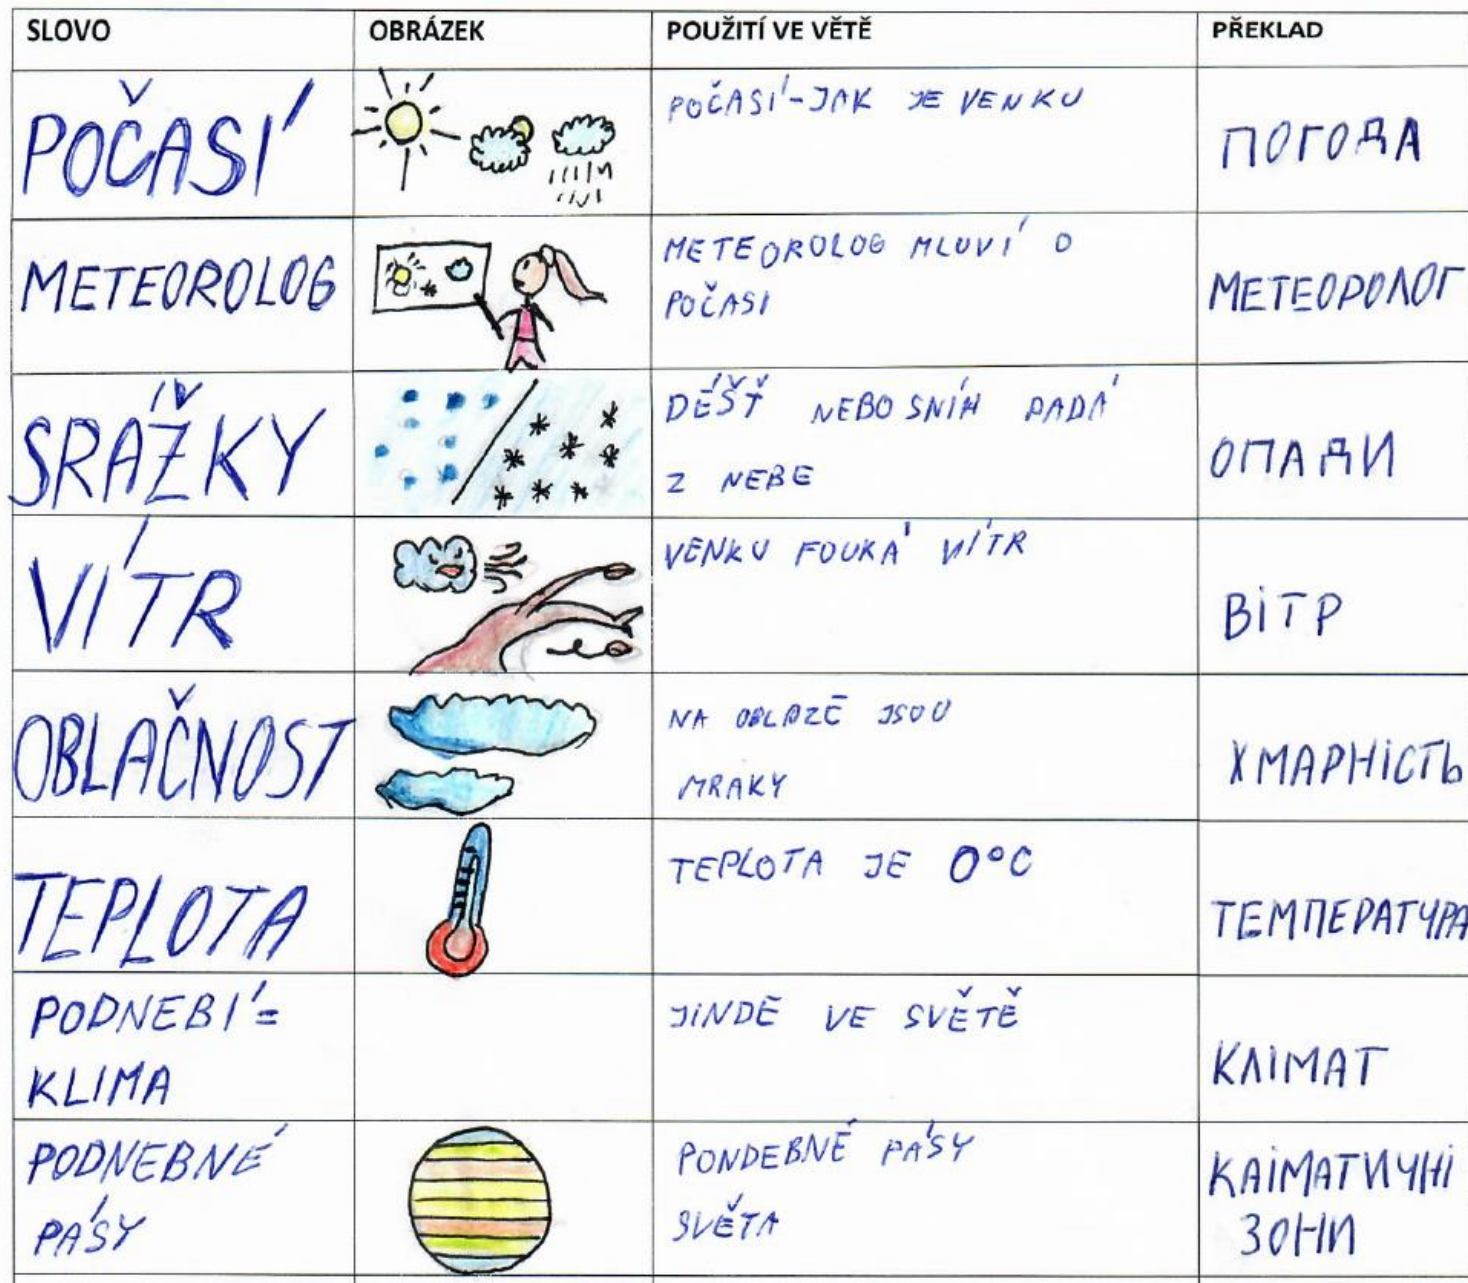 SLOVO OBRÁZEK POUŽITÍ VE VĚTĚ PŘEKLAD
POČASÍ POČASÍ-JAK JE VENKU ПОГОДА
METEOROLOG METEOROLOG MLUVÍ O
POČASI
МЕТЕОРОЛОГ
SRÁŽKY DÉŠŤ NEBO SNÍH PADÁ
Z NEBE
ОПАДИ
VÍTR VENKU FOUKÁ VÍTR ВІТР
OBLAČNOST NA OBLOZĒ JSOU
MRAKY
ХМАРНІСТЬ
TEPLOTA TEPLOTA JE 0°C ТЕМПЕРАТУРА
PODNEBÍ=
KLIMA
JINDE VE SVĚTĚ
КЛІМАТ
PODNEBNÉ
PÁSY
PONDEBNÉ PÁSY
SVĚTA
КЛІМАТИЧНІ
ЗОНИ